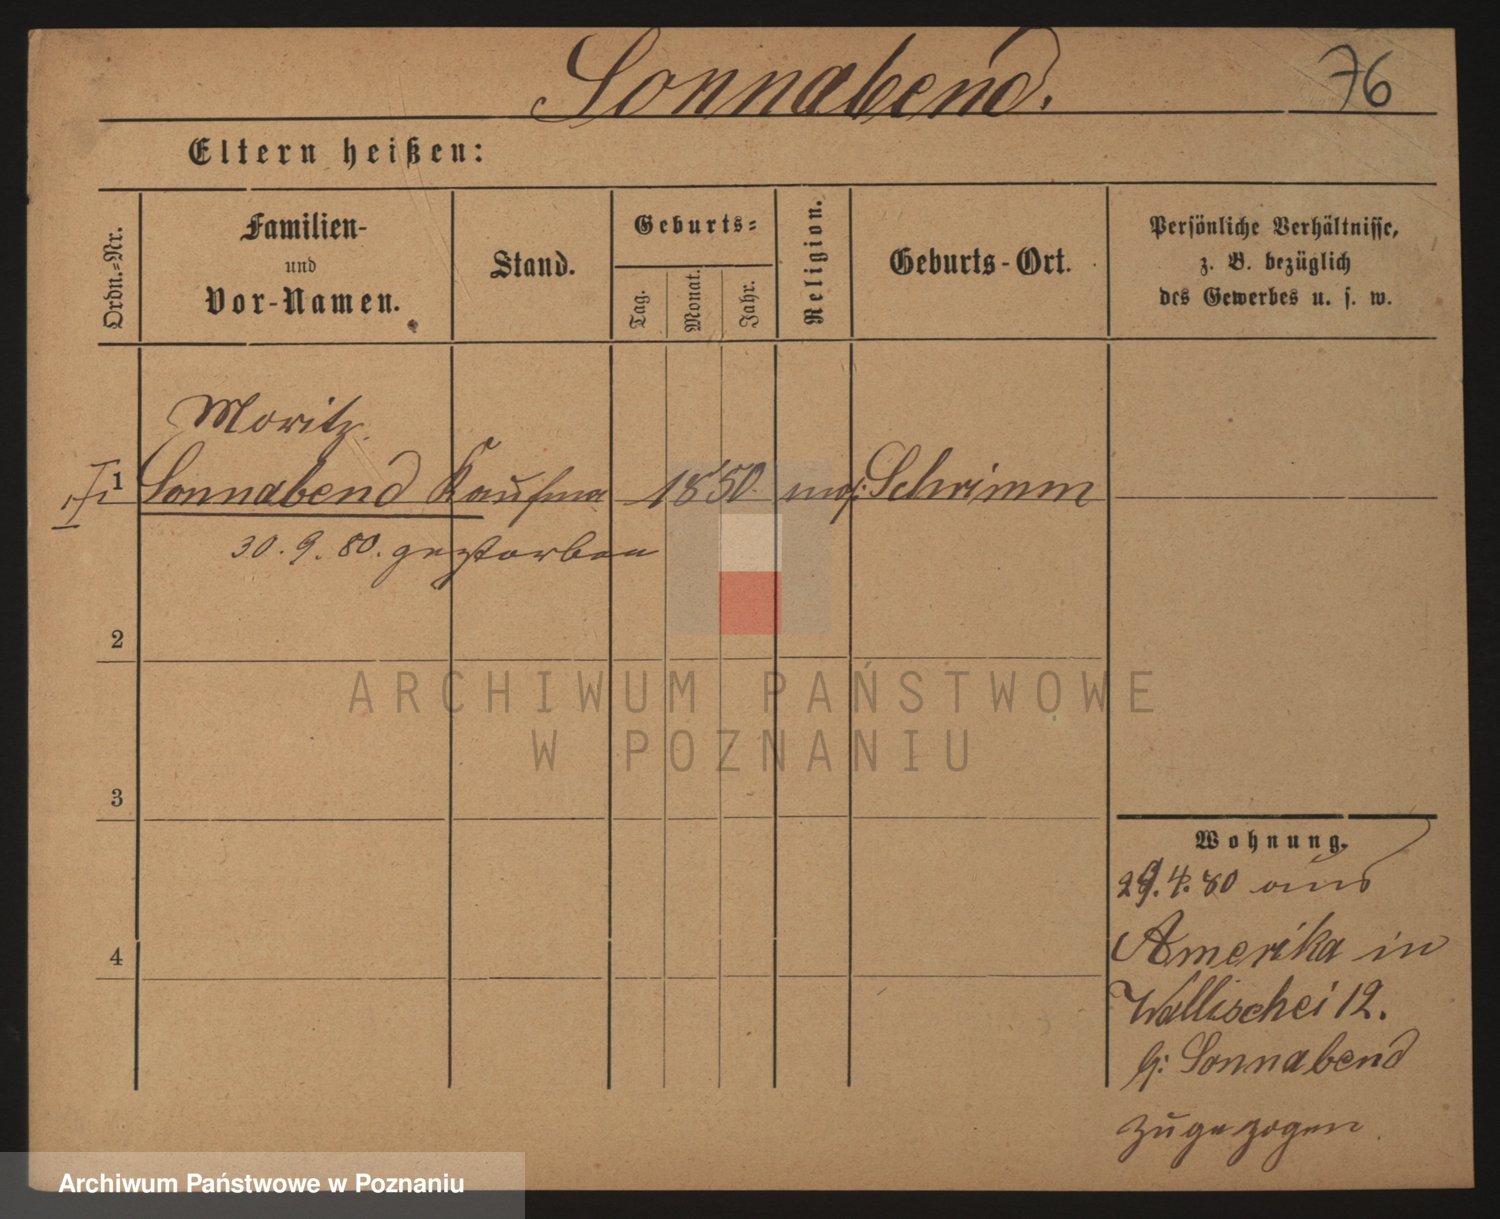 Sonnabend.
76
Eltern heißen:
Ordn.-Nr.
Familien-
und
Vor-Namen.
Stand.
Geburts-
Tag.
Monat.
Jahr.
Religion.
Geburts-Ort.
Persönliche Verhältnisse,
z. B. bezüglich
des Gewerbes u. s. w.
Moritz
1 Sonnabend Kaufma 1850. mos: Schrimm
30. 9. 80. gestorben
2
3
4
Wohnung.
29. 4. 80 aus
Amerika in
Wallischei 12.
b: Sonnabend
zugezogen
ARCHIWUM PAŃSTWOWE
W POZNANIU
Archiwum Państwowe w Poznaniu